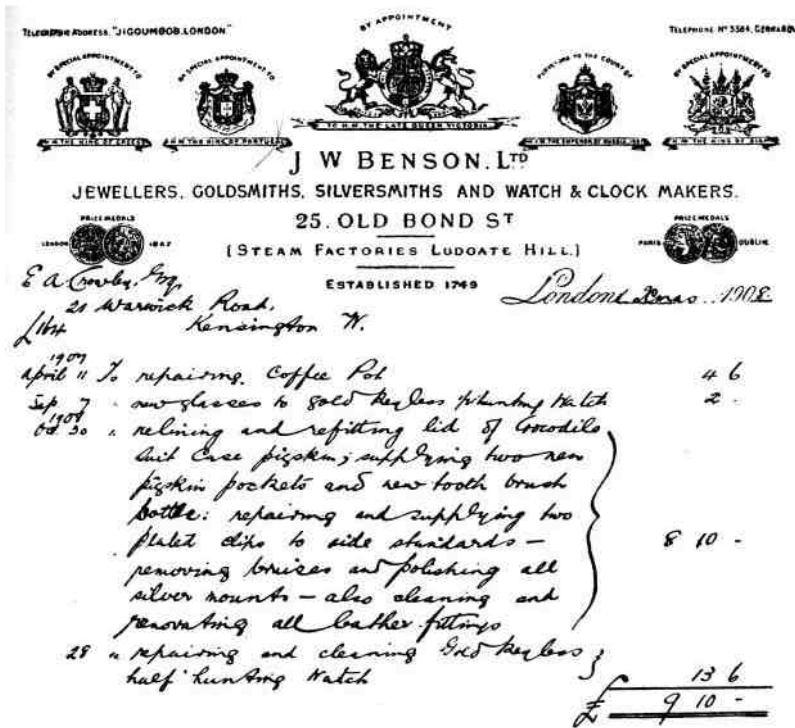 TELEGRAPHIC ADDRESS, "JIGOUMBOB, LONDON."
BY APPOINTMENT
TELEPHONE Nº 3564, GERRARD
BY SPECIAL APPOINTMENT TO
BY SPECIAL APPOINTMENT TO
PURVEYORS TO THE COURT OF
BY SPECIAL APPOINTMENT TO
H.M. THE KING OF GREECE
H.M. THE KING OF PORTUGAL
TO H.M. THE LATE QUEEN VICTORIA
H.I.M. THE EMPEROR OF RUSSIA
H.M. THE KING OF SIAM
J W BENSON. LTD
JEWELLERS, GOLDSMITHS, SILVERSMITHS AND WATCH & CLOCK MAKERS.
25. OLD BOND ST
PRIZE MEDALS
LONDON 1862
PRIZE MEDALS
PARIS DUBLIN
(STEAM FACTORIES LUDGATE HILL.)
ESTABLISHED 1749
E A Crowley, Esq
21 Warwick Road,
Kensington W.
£164
London Xmas 1908
1907
April 11 To repairing Coffee Pot 4 6
Sep 7 " new glasses to gold keyless ½ hunting Watch 2 -
1908
Oct 30 " relining and refitting lid of Crocodile
suit case pigskin; supplying two new
pigskin pockets and new tooth brush
bottle: repairing and supplying two
plated clips to side standards — 8 10 -
removing bruises and polishing all
silver mounts — also cleaning and
renovating all leather fittings
28 " repairing and cleaning Gold keyless
half hunting Watch 13 6
£ 9 10 -